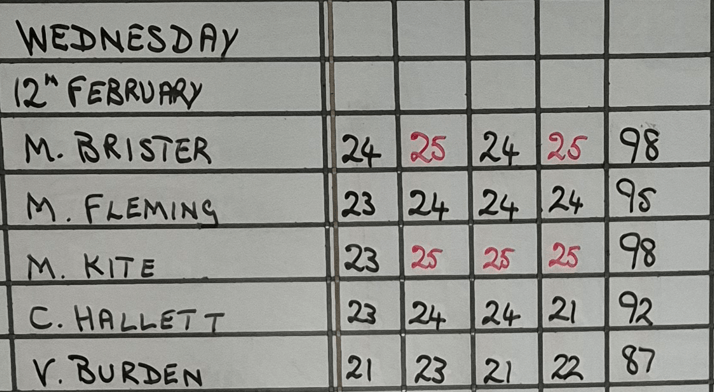 WEDNESDAY
12TH FEBRUARY
M. BRISTER 24 25 24 25 98
M. FLEMING 23 24 24 24 95
M. KITE 23 25 25 25 98
C. HALLETT 23 24 24 21 92
V. BURDEN 21 23 21 22 87